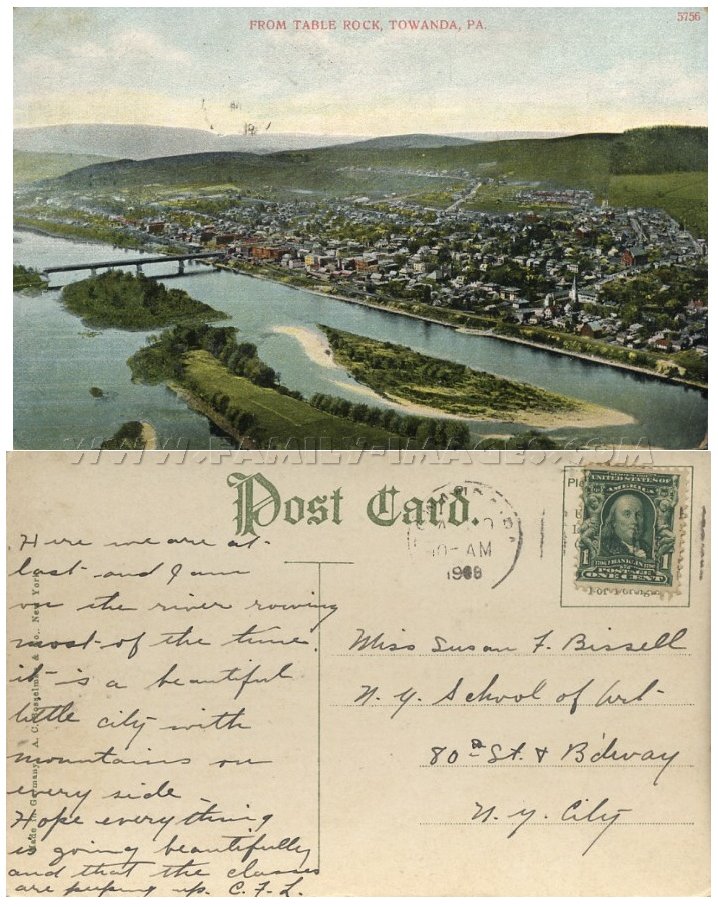 FROM TABLE ROCK, TOWANDA, PA.
5756
WWW.FAMILY-IMAGES.COM
Post Card.
10-AM
1908
UNITED STATES OF AMERICA
1 FRANKLIN 1
POSTAGE
ONE CENT
Here we are at
last and I am
on the river rowing
most of the time.
it is a beautiful
little city with
mountains on
every side
Hope everything
is going beautifully
and that the classes
are keeping up. C.F.L.
Miss Susan F. Bissell
N.Y. School of Art
80th St. & B'dway
N.Y. City
Made in Germany. A. C. Bosselman & Co., New York